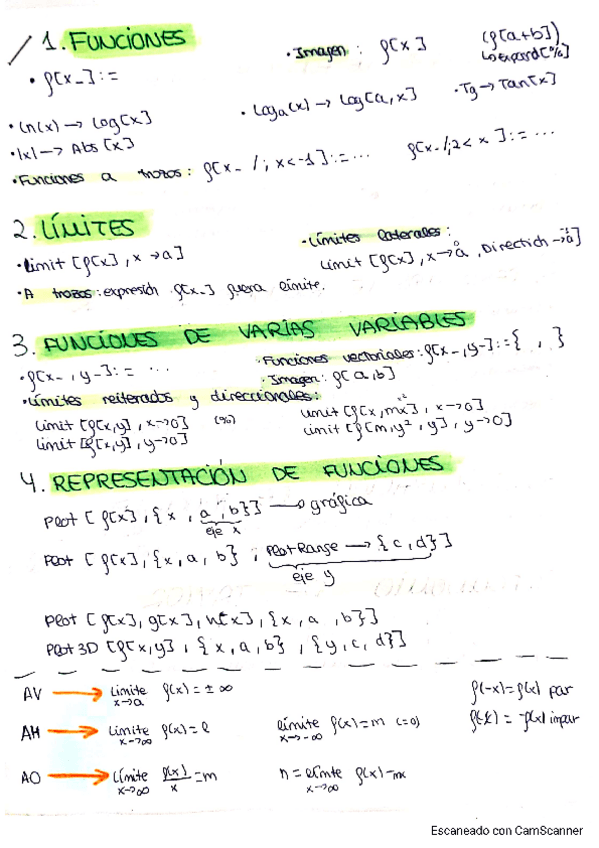 1. FUNCIONES
• f[x_]:=
• Imagen : f[x]
f[a+b]
↳ expand[%]
• Ln(x) → Log[x]
• Loga(x) → Log[a,x]
• Tg → Tan[x]
• |x| → Abs[x]
• Funciones a trozos: f[x_ /; x<-1]:= ...
f[x_/;2<x]:= ...
2. LÍMITES
• limit [f[x], x→a]
• Límites laterales:
limit [f[x], x→a, Direction →
• A trozos: expresión f[x_] fuera límite.
3. FUNCIONES DE VARIAS VARIABLES
• f[x_, y_]:= ...
• Funciones vectoriales: f[x_,y_]:={ , }
• Imagen: f[a,b]
• Límites reiterados y direccionales:
Limit [f[x,y], x→0] (%)
Limit [f[x,y], y→0]
Limit [f[x,mx], x→0]
Limit [f[m,y², y], y→0]
4. REPRESENTACIÓN DE FUNCIONES
Plot [f[x], {x, a, b}] → gráfica
eje x
Plot [f[x], {x, a, b}, PlotRange → {c, d}]
eje y
Plot [f[x], g[x], h[x], {x, a, b}]
Plot 3D [f[x,y], {x, a, b}, {y, c, d}]
AV → Límite x→a f(x) = ± ∞
f(-x)=f(x) par
AH → Límite x→∞ f(x) = l
límite x→-∞ f(x)=m (=0)
= -f(x) impar
AO → Límite x→∞ f(x)/x = m
n = límite x→∞ f(x)-mx
Escaneado con CamScanner